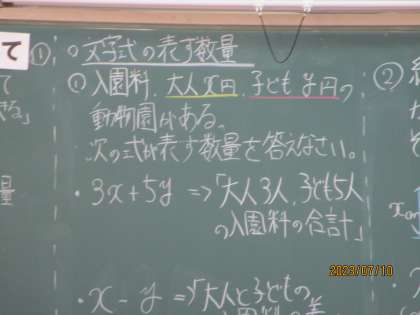 て
①
○文字式の表す数量
① 入園料、大人x円、子どもy円の
動物園がある。
次の式が表す数量を答えなさい。
・3x+5y ⇒「大人3人、子ども5人
の入園料の合計」
・x-y ⇒「大人と子どもの
入園料の差
②
て
きる」
量
2023/07/10